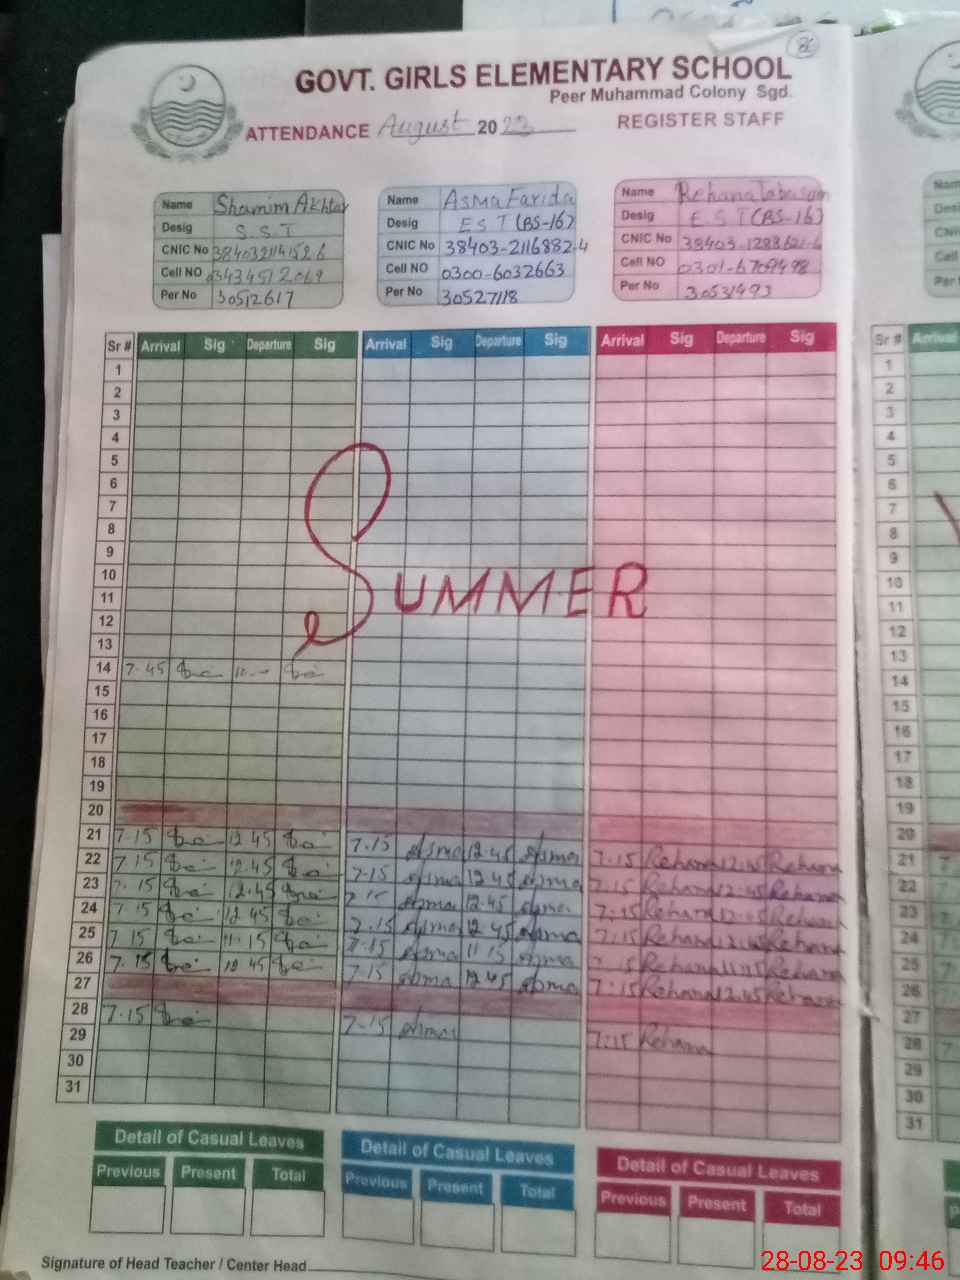 36
GOVT. GIRLS ELEMENTARY SCHOOL
Peer Muhammad Colony Sgd.
ATTENDANCE August 2023 REGISTER STAFF
Name Shamim Akhtar
Desig S.S.T
CNIC No
Cell NO
Per No 30512617
Name Asma Farida
Desig E S T (BS-16)
CNIC No 38403-2116882-4
Cell NO 0300-6032663
Per No 30527118
Name Rehana Tabasum
Desig E.S.T (BS-16)
CNIC No
Cell NO
Per No 30531493
Sr # Arrival Sig Departure Sig Arrival Sig Departure Sig Arrival Sig Departure Sig Sr # Arrival
1 1
2 2
3 3
4 4
5 5
6 6
7 7
8 8
9 9
10 10
11 11
SUMMER
12 12
13 13
14 7.45 14
15 15
16 16
17 17
18 18
19 19
20 20
21 7.15 12 45 7.15 Asma 12.45 Asma 7.15 Rehana 12.45 Rehana 21
22 7.15 12.45 7.15 Asma 12 45 Asma 7.15 Rehana 12.45 Rehana 22
23 7.15 12.45 Asma 12.45 Asma 7:15 Rehana Rehana 23
24 7.15 12 45 7.15 Asma 12 45 Asma 7:15 Rehana Rehana 24
25 7.15 11.15 7.15 Asma 11 15 Asma Rehana 11.15 Rehana 25
26 7.15 12 45 7.15 Asma 12.45 Asma 7:15 Rehana 12.45 Rehana 26
27 27
28 7.15 7.15 Asma 7:15 Rehana 28
29 29
30 30
31 31
Detail of Casual Leaves Detail of Casual Leaves Detail of Casual Leaves
Previous Present Total Previous Present Total Previous Present Total
Signature of Head Teacher / Center Head
28-08-23 09:46